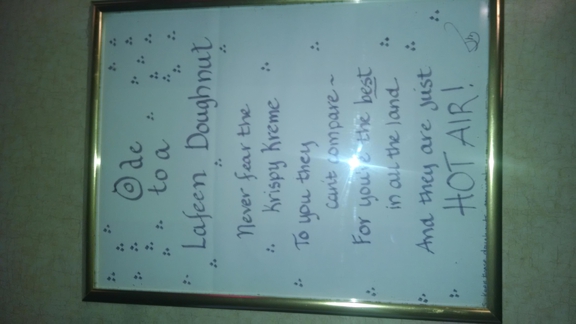 Ode
to a
Lafeen Doughnut
Never fear the
Krispy Kreme
To you they
can't compare ~
For you're the best
in all the land
And they are just
HOT AIR!